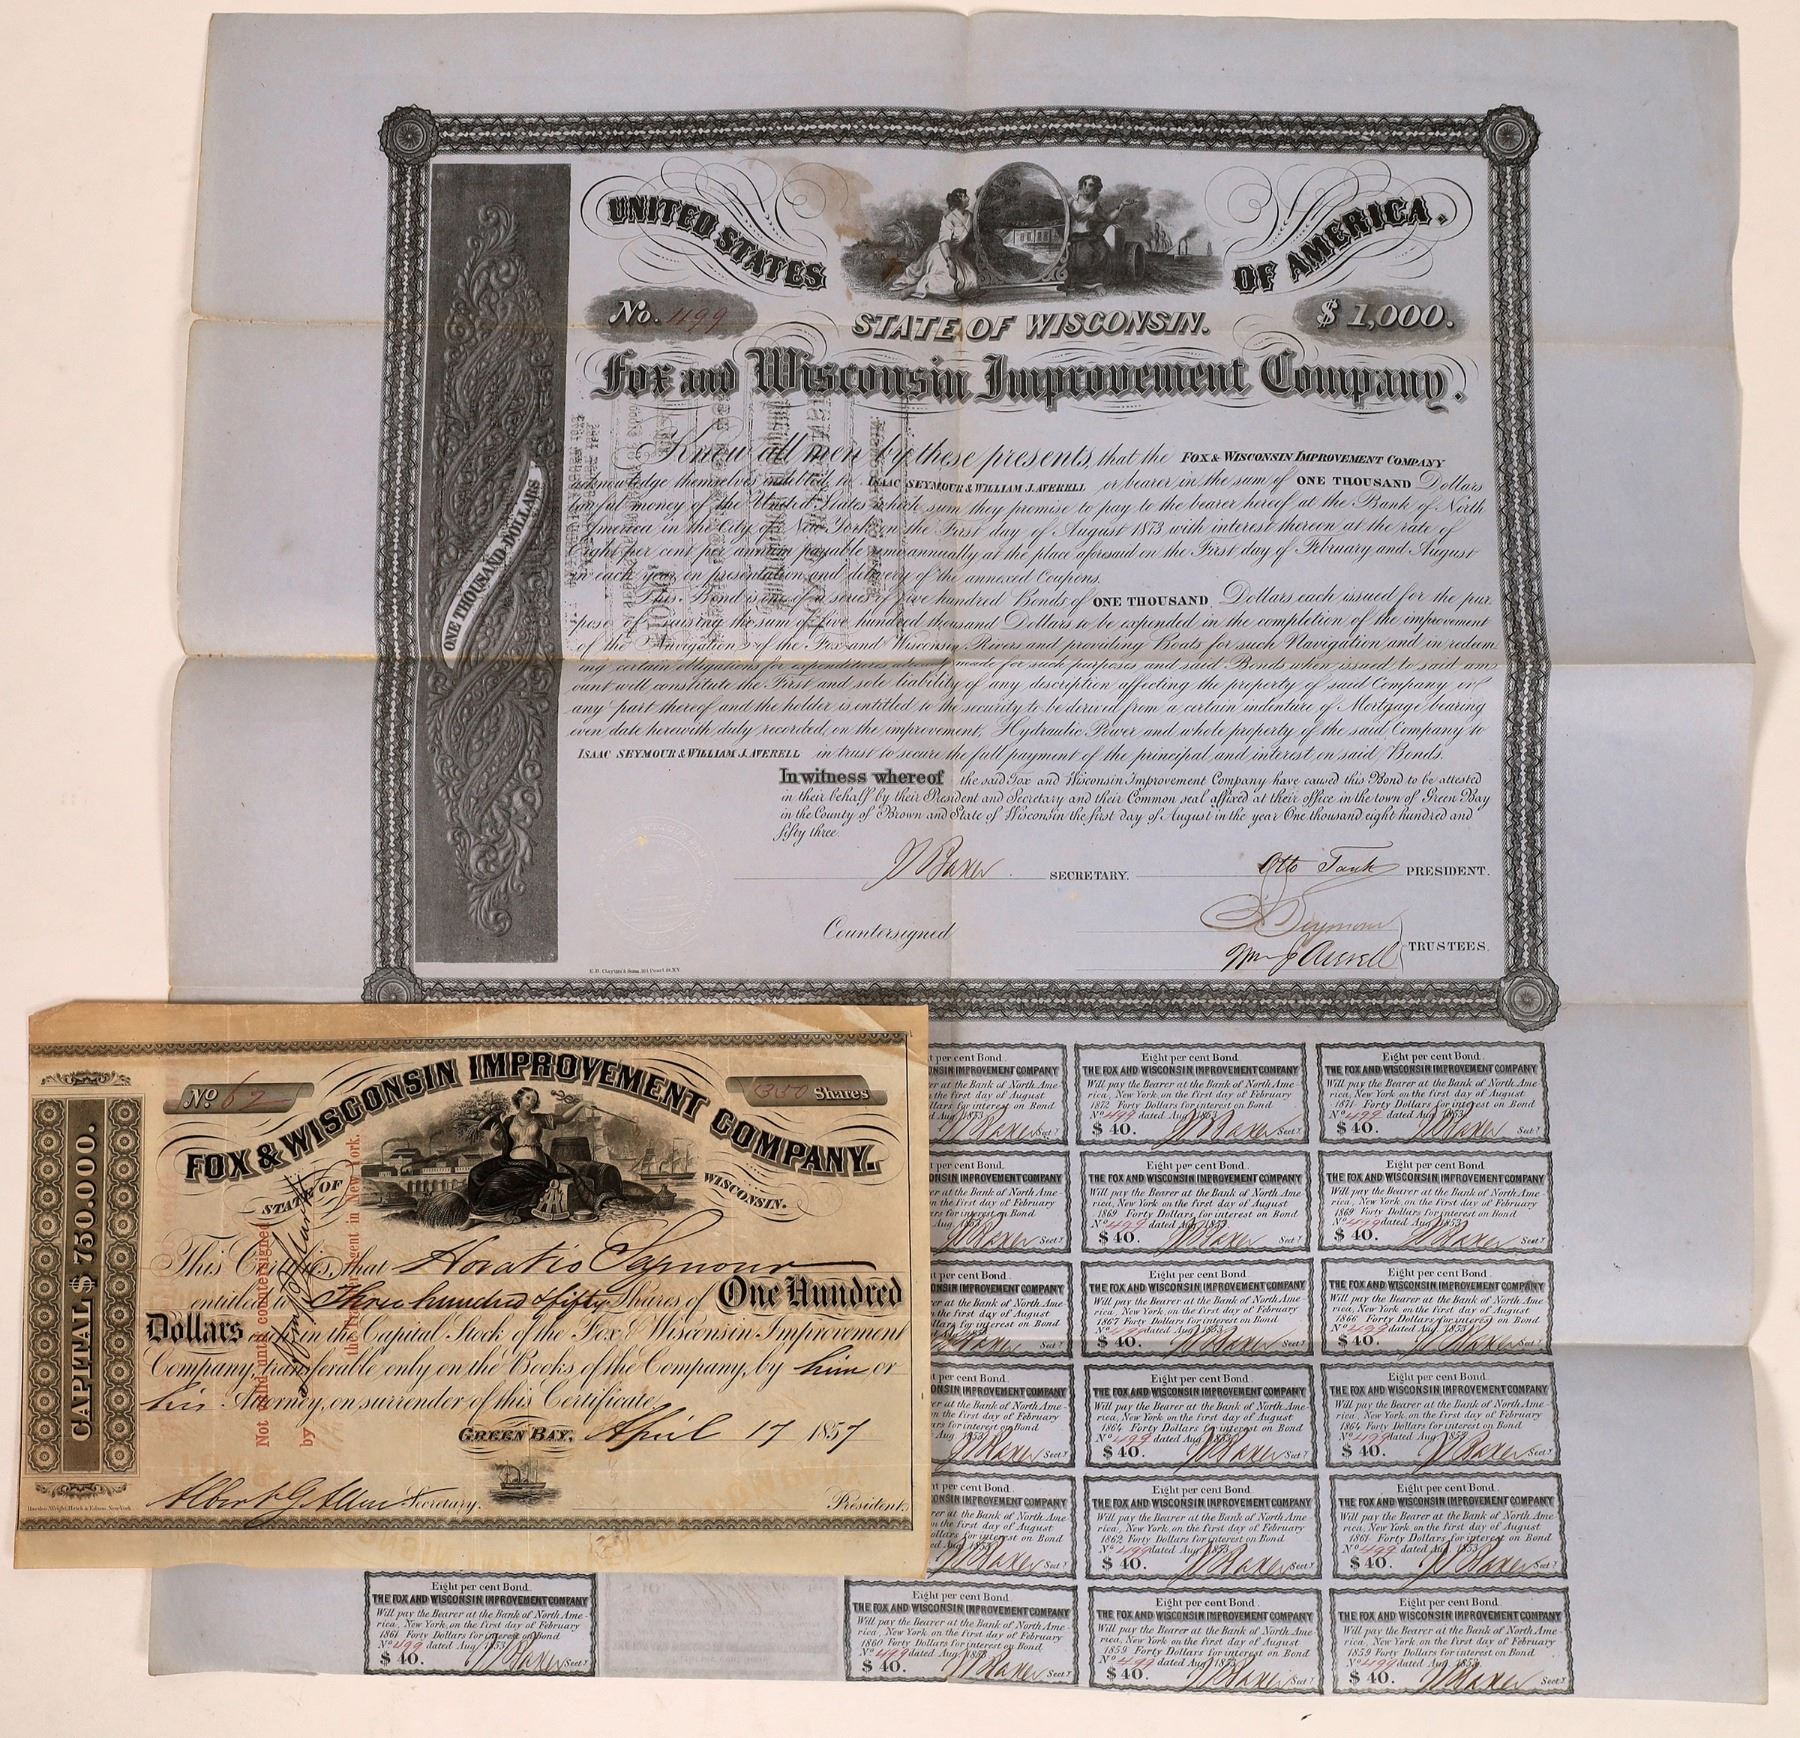 UNITED STATES
OF AMERICA.
No. 499
$ 1,000.
STATE OF WISCONSIN.
Fox and Wisconsin Improvement Company.
ONE THOUSAND DOLLARS
Know all men by these presents, that the FOX & WISCONSIN IMPROVEMENT COMPANY
acknowledge themselves indebted to ISAAC SEYMOUR & WILLIAM J. AVERELL or bearer in the sum of ONE THOUSAND Dollars
lawful money of the United States which sum they promise to pay to the bearer hereof at the Bank of North
America in the City of New York on the First day of August 1873 with interest thereon at the rate of
Eight per cent per annum payable semi annually at the place aforesaid on the First day of February and August
in each year on presentation and delivery of the annexed Coupons.
This Bond is one of a series of five hundred Bonds of ONE THOUSAND Dollars each issued for the pur
pose of raising the sum of five hundred thousand Dollars to be expended in the completion of the improvement
of the Navigation of the Fox and Wisconsin Rivers and providing Boats for such Navigation and in redeem
ing certain obligations for expenditures already made for such purposes and said Bonds when issued to said am
ount will constitute the First and sole liability of any description affecting the property of said Company or
any part thereof and the holder is entitled to the security to be derived from a certain indenture of Mortgage bearing
even date herewith duly recorded, on the improvement, Hydraulic Power and whole property of the said Company to
ISAAC SEYMOUR & WILLIAM J. AVERELL in trust to secure the full payment of the principal and interest on said Bonds.
In witness whereof the said Fox and Wisconsin Improvement Company have caused this Bond to be attested
in their behalf by their President and Secretary and their Common seal affixed at their office in the town of Green Bay
in the County of Brown and State of Wisconsin the first day of August in the year One thousand eight hundred and
fifty three.
Baxer SECRETARY. Otto Tank PRESIDENT.
Countersigned
Seymour
Wm J Averell TRUSTEES.
E.B. Clayton's Sons, 161 Pearl St. N.Y.
No 62
350 Shares
FOX & WISCONSIN IMPROVEMENT COMPANY.
STATE OF WISCONSIN.
CAPITAL $ 750.000.
This Certifies, that Horatio Seymour
entitled to Three hundred & fifty Shares of One Hundred
Dollars each in the Capital Stock of the Fox & Wisconsin Improvement
Company, transferable only on the Books of the Company, by him or
his Attorney, on surrender of this Certificate.
GREEN BAY, April 17 1857
Albert G. Allen Secretary.
President.
Not valid until countersigned
by
the Transfer Agent in New York.
Eight per cent Bond.
THE FOX AND WISCONSIN IMPROVEMENT COMPANY
Will pay the Bearer at the Bank of North Ame-
rica, New York on the first day of February
1872 Forty Dollars for interest on Bond
No 499 dated Aug. 1853
$ 40. Baxer Sect.y
Eight per cent Bond.
THE FOX AND WISCONSIN IMPROVEMENT COMPANY
Will pay the Bearer at the Bank of North Ame-
rica, New York on the first day of August
1871 Forty Dollars for interest on Bond
No 499 dated Aug. 1853
$ 40. Baxer Sect.y
Eight per cent Bond.
THE FOX AND WISCONSIN IMPROVEMENT COMPANY
Will pay the Bearer at the Bank of North Ame-
rica, New York on the first day of August
1869 Forty Dollars for interest on Bond
No 499 dated Aug. 1853
$ 40. Baxer Sect.y
Eight per cent Bond.
THE FOX AND WISCONSIN IMPROVEMENT COMPANY
Will pay the Bearer at the Bank of North Ame-
rica, New York on the first day of February
1869 Forty Dollars for interest on Bond
No 499 dated Aug. 1853
$ 40. Baxer Sect.y
Eight per cent Bond.
THE FOX AND WISCONSIN IMPROVEMENT COMPANY
Will pay the Bearer at the Bank of North Ame-
rica, New York, on the first day of February
1867 Forty Dollars for interest on Bond
No 499 dated Aug. 1853
$ 40. Baxer Sect.y
Eight per cent Bond.
THE FOX AND WISCONSIN IMPROVEMENT COMPANY
Will pay the Bearer at the Bank of North Ame-
rica, New York, on the first day of August
1866 Forty Dollars for interest on Bond
No 499 dated Aug. 1853
$ 40. Baxer Sect.y
Eight per cent Bond.
THE FOX AND WISCONSIN IMPROVEMENT COMPANY
Will pay the Bearer at the Bank of North Ame-
rica, New York on the first day of August
1864 Forty Dollars for interest on Bond
No 499 dated Aug. 1853
$ 40. Baxer Sect.y
Eight per cent Bond.
THE FOX AND WISCONSIN IMPROVEMENT COMPANY
Will pay the Bearer at the Bank of North Ame-
rica, New York on the first day of February
1864 Forty Dollars for interest on Bond
No 499 dated Aug. 1853
$ 40. Baxer Sect.y
Eight per cent Bond.
THE FOX AND WISCONSIN IMPROVEMENT COMPANY
Will pay the Bearer at the Bank of North Ame-
rica, New York on the first day of February
1862 Forty Dollars for interest on Bond
No 499 dated Aug. 1853
$ 40. Baxer Sect.y
Eight per cent Bond.
THE FOX AND WISCONSIN IMPROVEMENT COMPANY
Will pay the Bearer at the Bank of North Ame-
rica, New York on the first day of August
1861 Forty Dollars for interest on Bond
No 499 dated Aug. 1853
$ 40. Baxer Sect.y
Eight per cent Bond.
THE FOX AND WISCONSIN IMPROVEMENT COMPANY
Will pay the Bearer at the Bank of North Ame-
rica, New York, on the first day of February
1861 Forty Dollars for interest on Bond
No 499 dated Aug. 1853
$ 40. Baxer Sect.y
Eight per cent Bond.
THE FOX AND WISCONSIN IMPROVEMENT COMPANY
Will pay the Bearer at the Bank of North Ame-
rica, New York on the first day of February
1860 Forty Dollars for interest on Bond
No 499 dated Aug. 1853
$ 40. Baxer Sect.y
Eight per cent Bond.
THE FOX AND WISCONSIN IMPROVEMENT COMPANY
Will pay the Bearer at the Bank of North Ame-
rica, New York on the first day of August
1859 Forty Dollars for interest on Bond
No 499 dated Aug. 1853
$ 40. Baxer Sect.y
Eight per cent Bond.
THE FOX AND WISCONSIN IMPROVEMENT COMPANY
Will pay the Bearer at the Bank of North Ame-
rica, New York on the first day of February
1859 Forty Dollars for interest on Bond
No 499 dated Aug. 1853
$ 40. Baxer Sect.y